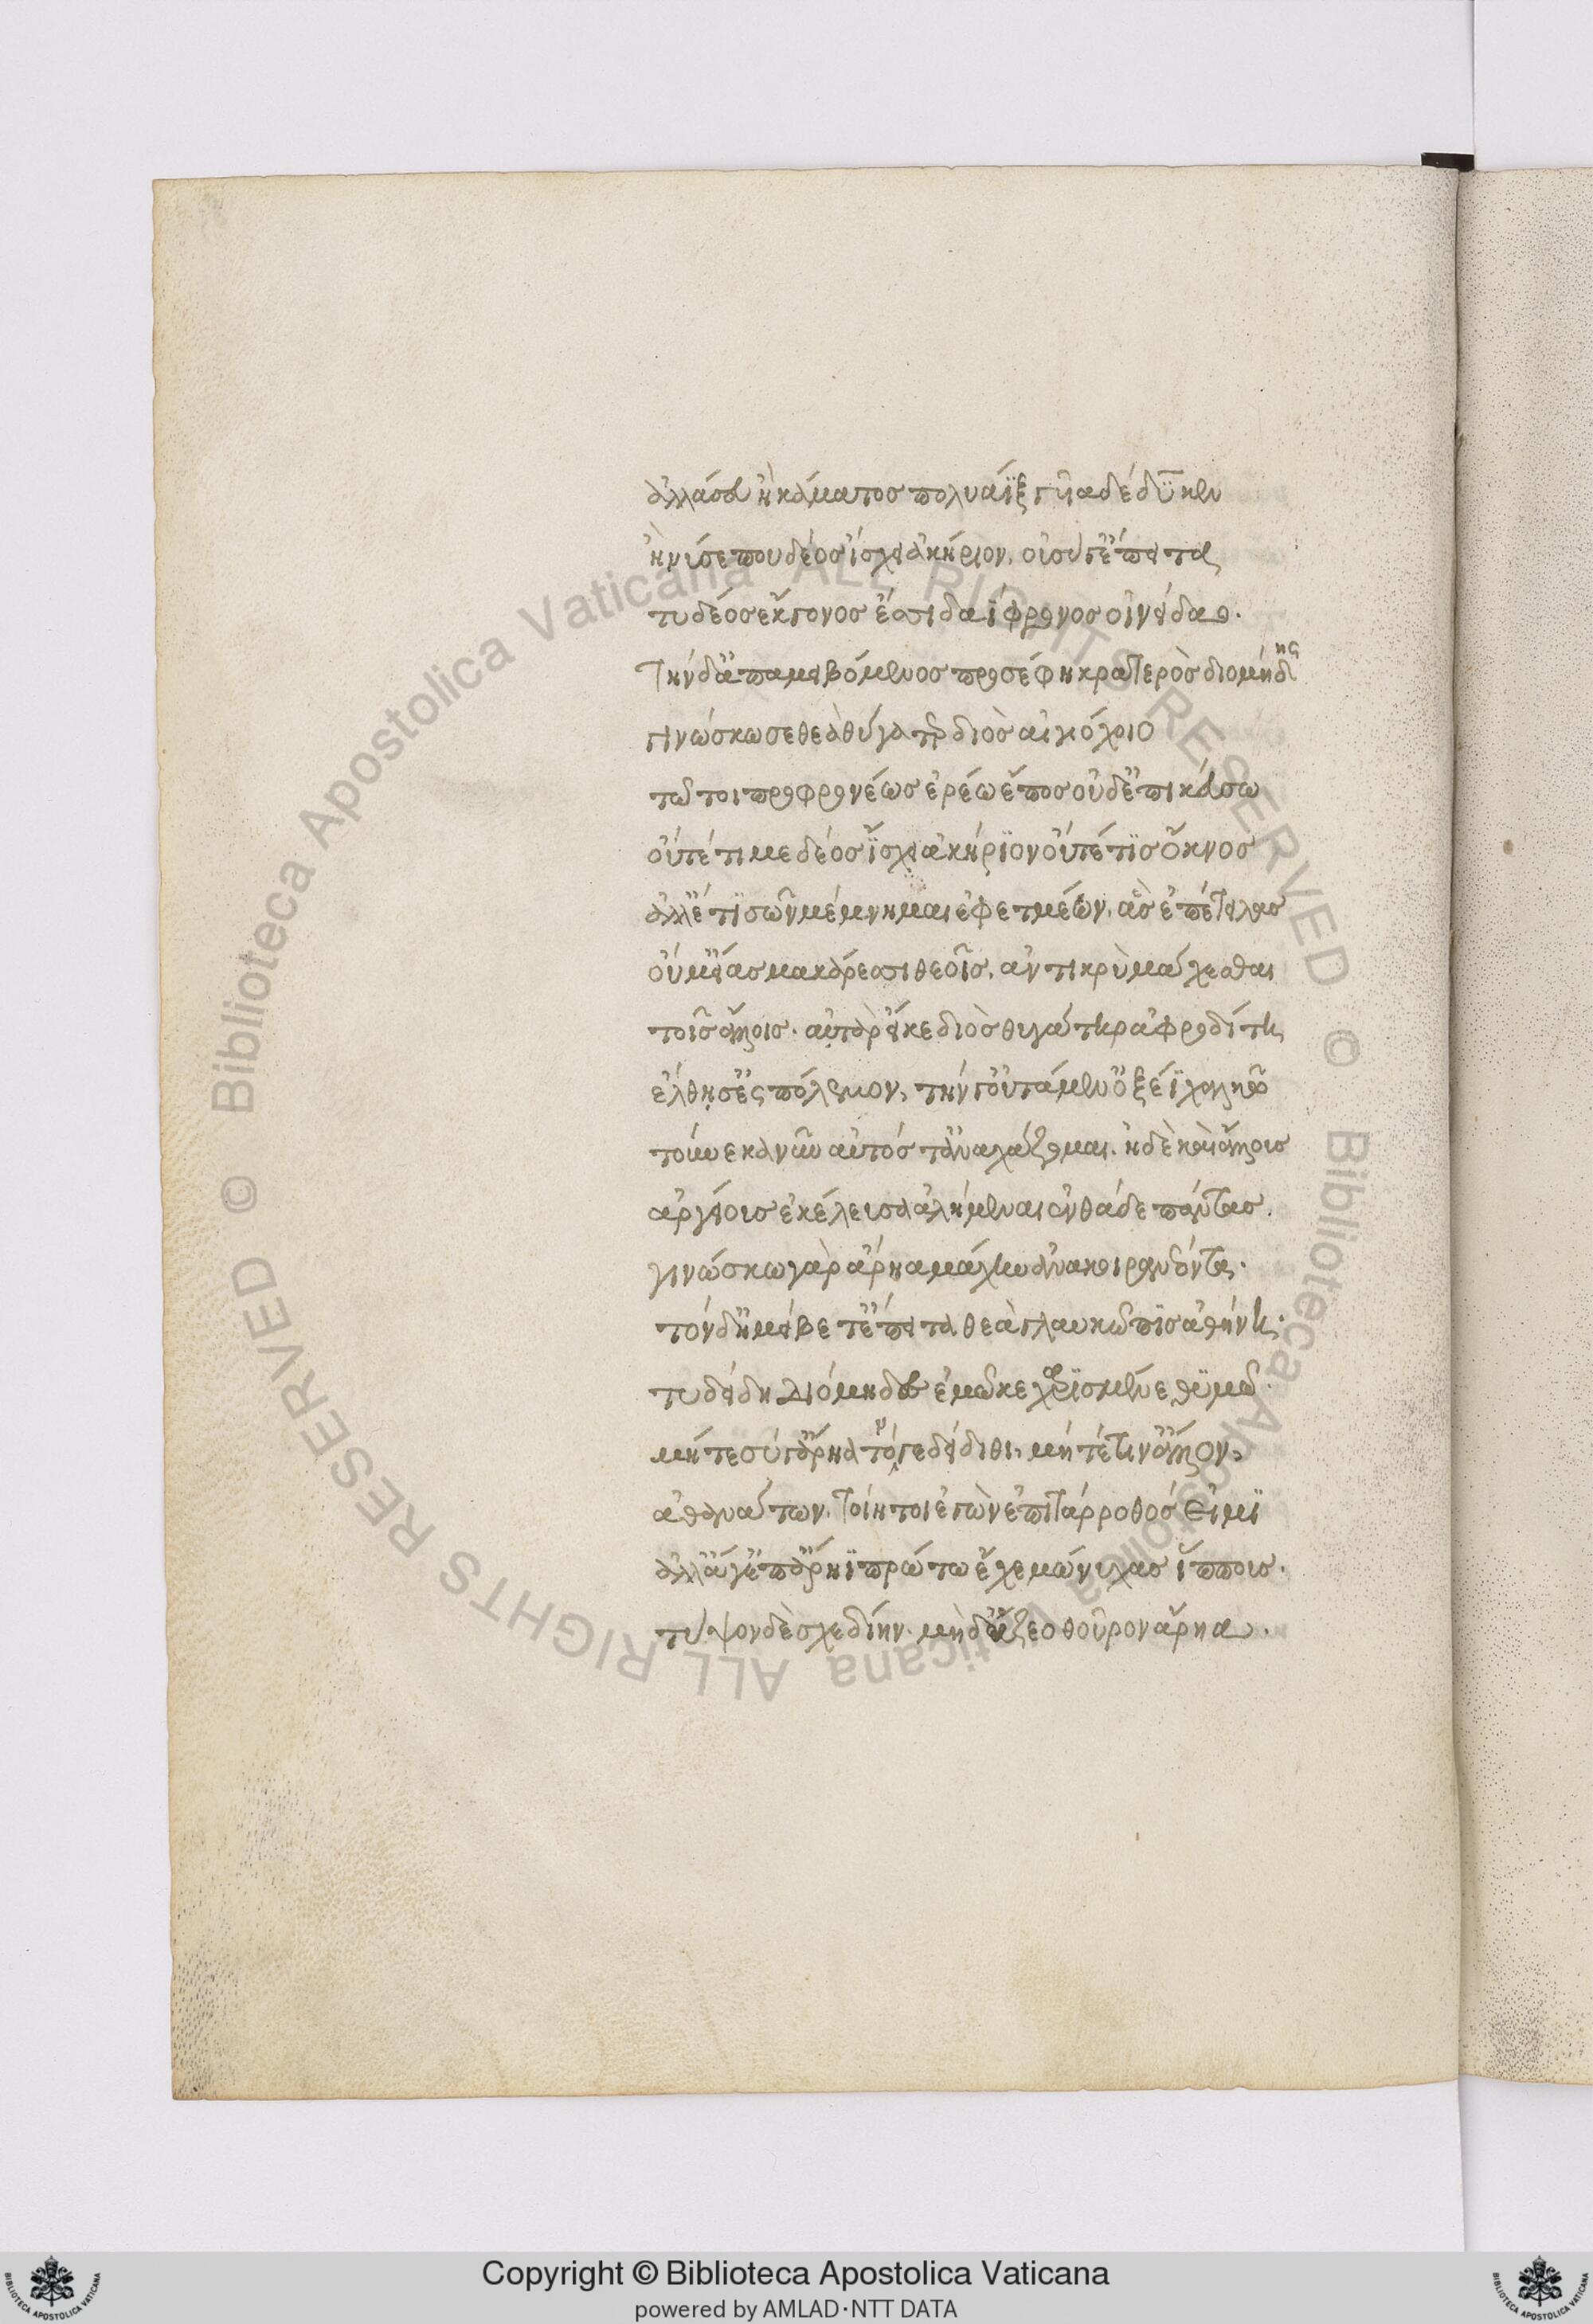 ἀλλά σευ ἢ κάματος πολυάϊξ γυῖα δέδϋκεν
ἢ νύ σέ που δέος ἴσχει ἀκήριον, οὐ σύ γ' ἔπειτα
τυδέος ἔκγονος ἐσσι δαΐφρονος οἰνείδαο.
Τὴν δ' ἀπαμειβόμενος προσέφη κρατερὸς διομήδης
γινώσκω σε θεὰ θύγατερ διὸς αἰγιόχοιο
τῶ τοι προφρονέως ἐρέω ἔπος οὐδ' ἐπικεύσω
οὔτέ τί με δέος ἴσχει ἀκήριον οὔτέ τις ὄκνος
ἀλλ' ἔτι σῶν μέμνημαι ἐφετμέων, ἃς ἐπέτειλας
οὔ μ' εἴας μακάρεσσι θεοῖς, ἀντικρὺ μάχεσθαι
τοῖς ἄλλοις. αὐτὰρ εἴ κε διὸς θυγάτηρ ἀφροδίτη
ἔλθησ' ἐς πόλεμον, τήν γ' οὐτάμεν ὀξέϊ χαλκῶ
τούνεκα νῦν αὐτός τ' ἀναχάζομαι. ἠδὲ καὶ ἄλλους
ἀργείους ἐκέλευσα ἀλήμεναι ἐνθάδε πάντας.
γινώσκω γὰρ ἄρηα μάχην ἀνακοιρανέοντα.
τὸν δ' ἠμείβετ' ἔπειτα θεὰ γλαυκῶπις ἀθήνη.
τυδείδη διόμηδες ἐμῶ κεχαρισμένε θυμῶ.
μήτε σύ γ' ἄρηα τόν γε δείδιθι, μήτέ τιν' ἄλλον,
ἀθανάτων. τοίη τοι ἐγὼν ἐπιτάρροθός εἰμι
ἀλλ' ἄγ' ἐπ' ἄρηϊ πρώτω ἔχε μώνυχας ἵππους.
τύψον δὲ σχεδίην. μὴ δ' ἅζεο θοῦρον ἄρηα.
© Biblioteca Apostolica Vaticana ALL RIGHTS RESERVED © Biblioteca Apostolica Vaticana ALL RIGHTS RESERVED
Copyright © Biblioteca Apostolica Vaticana
powered by AMLAD·NTT DATA
BIBLIOTECA APOSTOLICA VATICANA
BIBLIOTECA APOSTOLICA VATICANA